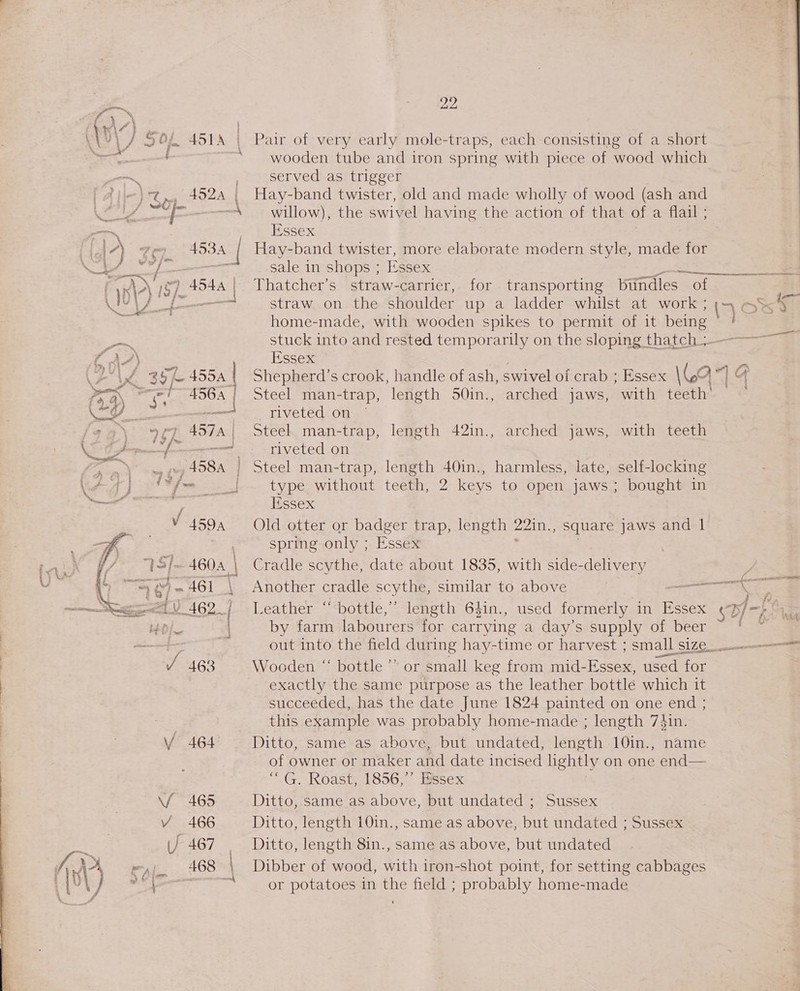 22
50/- 451A Pair of very early mole-traps, each consisting of a short
wooden tube and iron spring with piece of wood which
served as trigger
452A Hay-band twister, old and made wholly of wood (ash and
willow), the swivel having the action of that of a flail ;
Essex
453A Hay-band twister, more elaborate modern style, made for
sale in shops ; Essex
454A Thatcher's straw-carrier, for transporting bundles of
straw on the shoulder up a ladder whilst at work ;
home-made, with wooden spikes to permit of it being
stuck into and rested temporarily on the sloping thatch ;
Essex
35/- 455A Shepherd's crook, handle of ash, swivel of crab ; Essex
456A Steel man-trap, length 50in., arched jaws, with teeth
riveted on
457A Steel man-trap, length 42in., arched jaws, with teeth
riveted on
458A Steel man-trap, length 40in., harmless, late, self-locking
type without teeth, 2 keys to open jaws ; bought in
Essex
459A Old otter or badger trap, length 22in., square jaws and 1
spring only ; Essex
15/- 460A Cradle scythe, date about 1835, with side-delivery
461 Another cradle scythe, similar to above
462 Leather “ bottle,” length 6½in., used formerly in Essex
by farm labourers for carrying a day's supply of beer
out into the field during hay-time or harvest ; small size
463 Wooden “ bottle ” or small keg from mid-Essex, used for
exactly the same purpose as the leather bottle which it
succeeded, has the date June 1824 painted on one end ;
this example was probably home-made ; length 7½in.
464 Ditto, same as above, but undated, length 10in., name
of owner or maker and date incised lightly on one end—
“ G. Roast, 1856,” Essex
465 Ditto, same as above, but undated ; Sussex
466 Ditto, length 10in., same as above, but undated ; Sussex
467 Ditto, length 8in., same as above, but undated
468 Dibber of wood, with iron-shot point, for setting cabbages
or potatoes in the field ; probably home-made